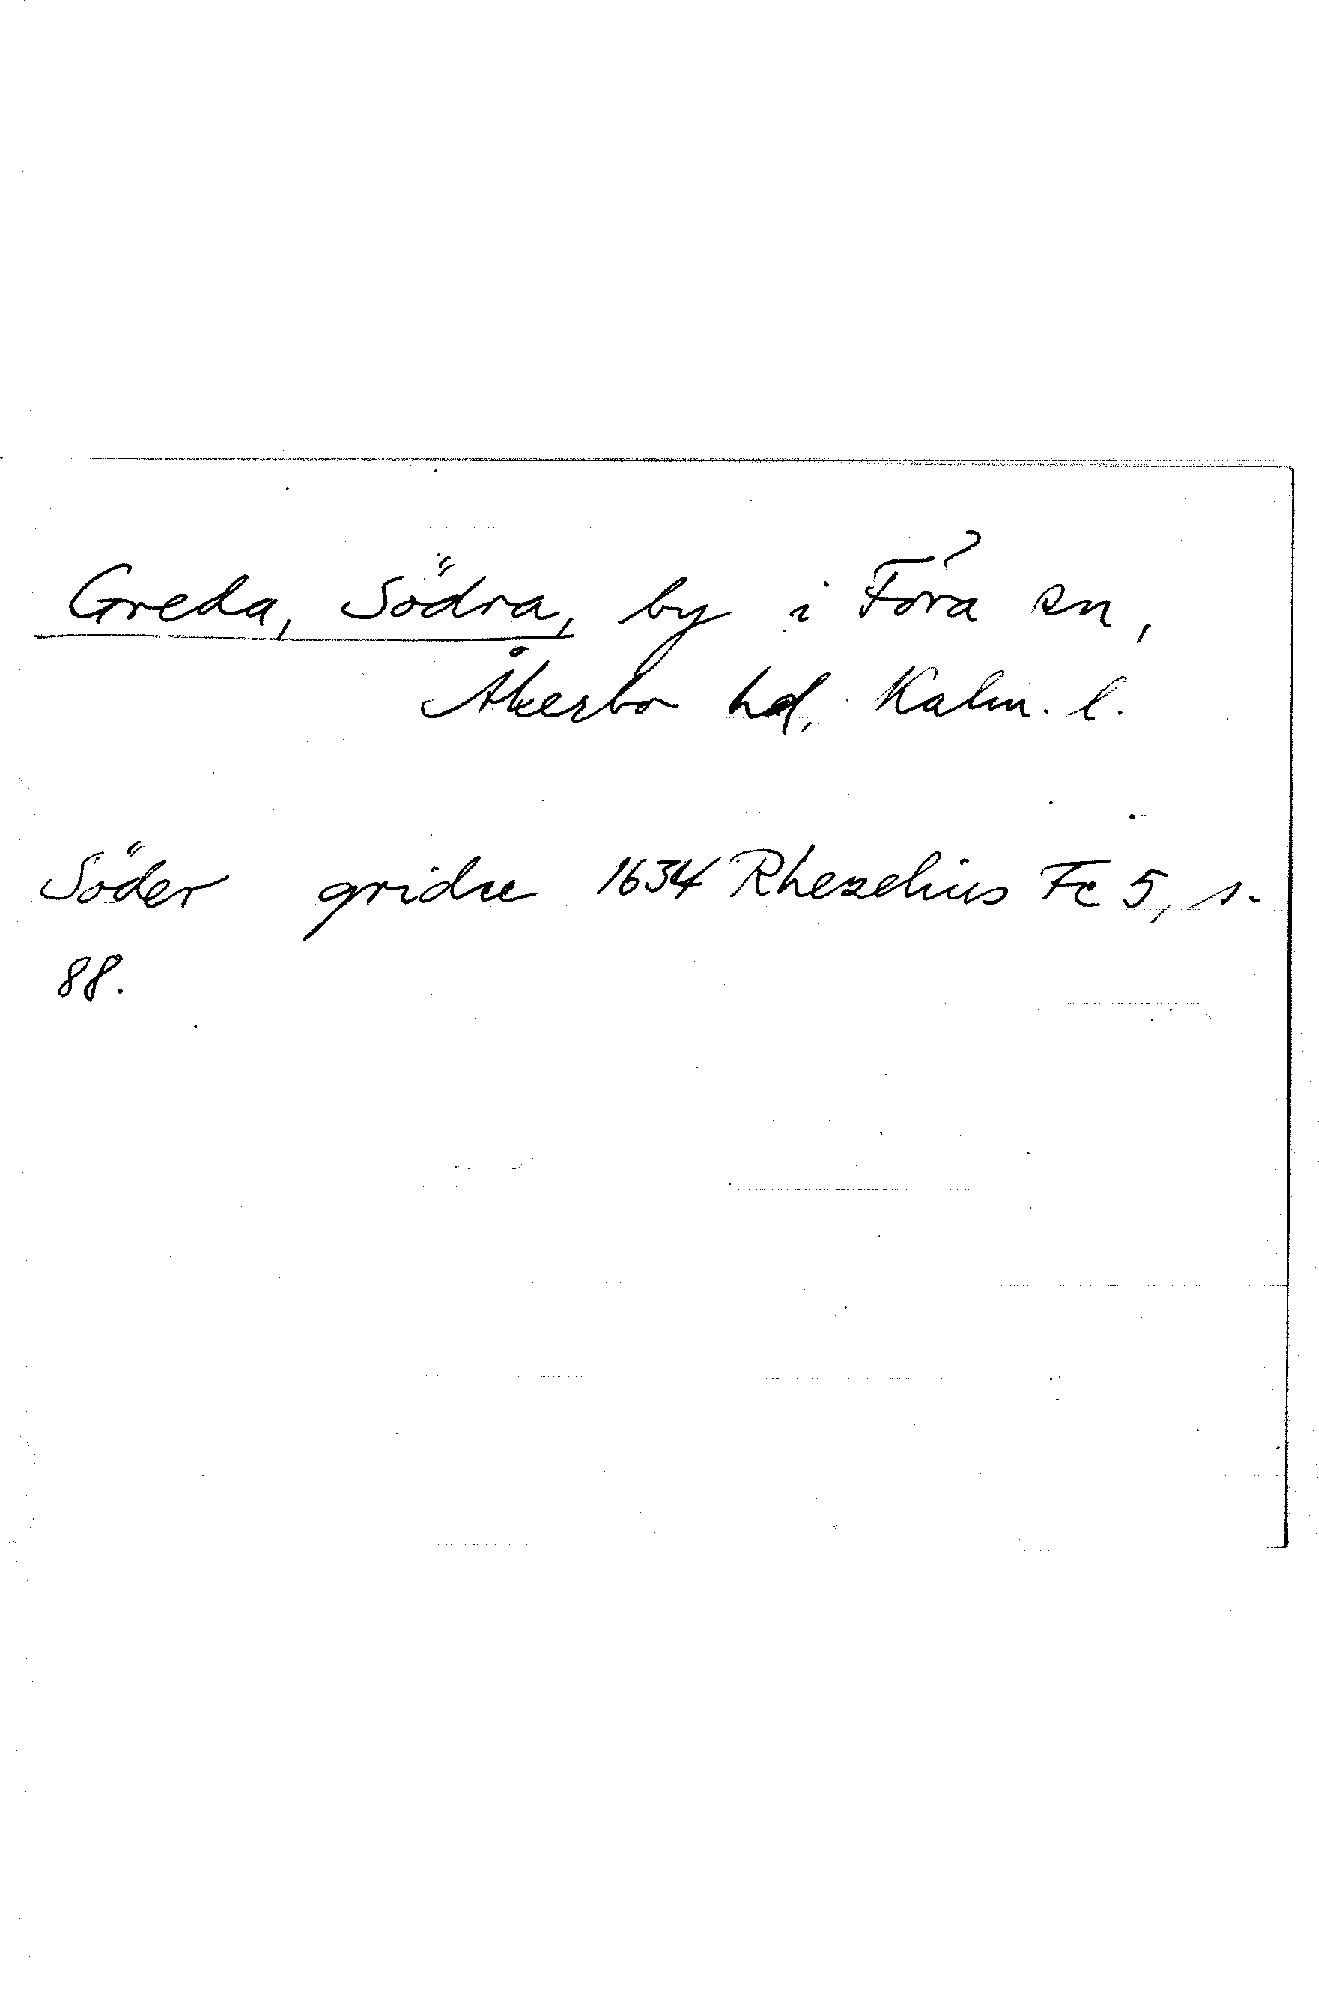 Greda, Södra, by i Föra sn,
Åkerbo hd, Kalm. l.
Söder gridæ 1634 Rhezelius Fc 5, s.
88.